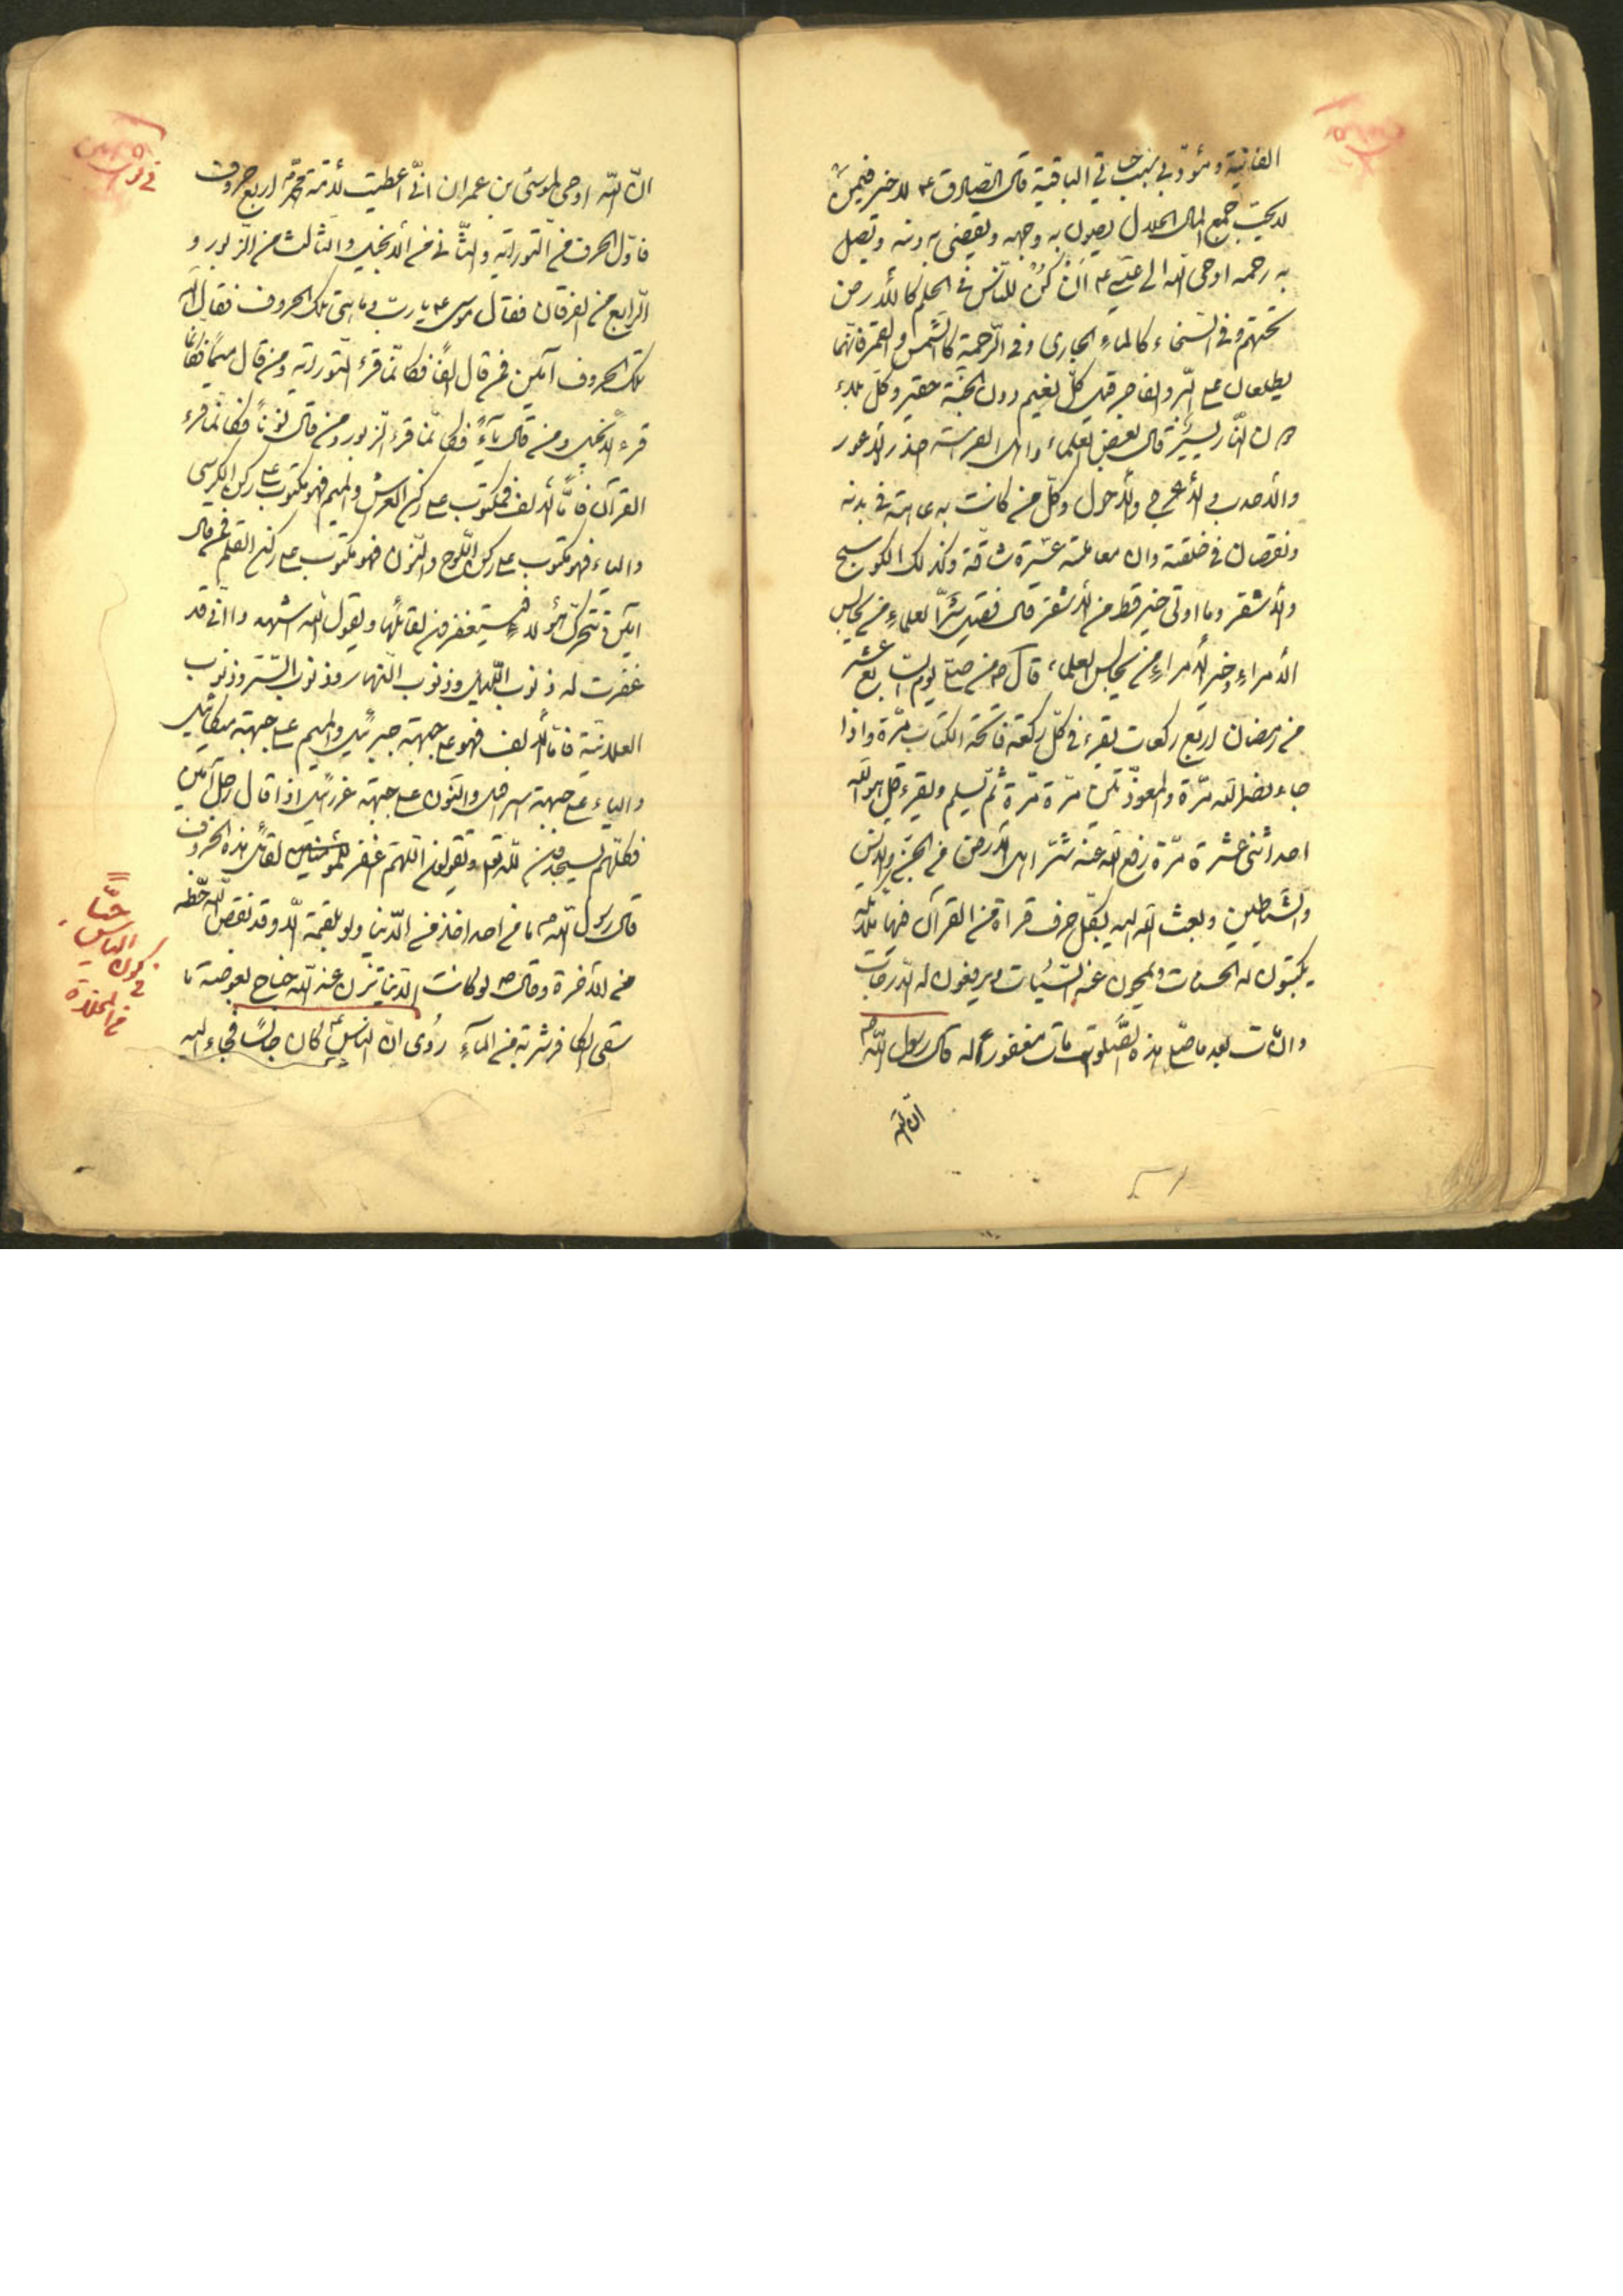 الفانية ومؤدّبي بنيت حياتي الباقية قال الصّادق ع لا خير فيمن
لا يحبّ جمع المال الحلال يصون به وجهه ويقضي به دينه ويصل
به رحمه اوحى الله الى عيسى ع اَنْ كُنْ للنّاس في الحلم كالأرض
تحتهم وفي السّخاء كالماءِ الجاري وفي الرّحمة كالشّمس والقمر فانّهما
يطلعان على البرّ والفاجر قيل كلّ نعيم دون الجنّة حقير وكلّ بلاء
دون النّار يسير قال بعض العلماء واهل الفراسة احذر الاعور
والأحدب والأعرج والأحول وكلّ من كانت به عاهة في بدنه
ونقصان في خلقته وان معاملته عسرة شاقّة وكذلك الكوسج
والأشقر وما اوتى خير قط من الأشقر قال فقيه شرّ العلماءِ من يجالس
الأمراءِ وخير الأمراءِ من يجالس العلماء، قال ص من صلّى يوم السابع عشر
من رمضان اربع ركعات يقرء في كلّ ركعة فاتحة الكتاب مرّة واذا
جاء نصر الله مرّة والمعوّذتين مرّة مرّة ثمّ يسلم ويقرء قل هو الله
احد اثنى عشرة مرّة رفع الله عنه شرّ اهل الأرض من الجنّ والانس
والشّياطين وبعث الله اليه بكلّ حرف قراه من القرآن فيها ملائكة
يكتبون له الحسنات ويمحون عنه السّيّئات ويرفعون له الدّرجات
وان مات بعد ما صلّى هذه الصّلوة مات مغفوراً له قال رسول الله ص
انّ الله
انّ الله اوحى لموسى بن عمران انّي اعطيت لأمّة محمّد اربع حروف
فاوّل الحرف من التّورية والثّاني من الأنجيل والثالث من الزّبور و
الرّابع من الفرقان فقال موسى ع يا ربّ وما هي تلك الحروف فقال الله
تلك الحروف آمين فمن قال الفاً فكانّما قرء التّورية ومن قال ميماً فكانّما
قرء الأنجيل ومن قال ياءً فكانّما قرء الزبور ومن قال نوناً فكانّما قرء
القرآن فامّا الألف فمكتوب على ركن العرش والميم فهو مكتوب على ركن الكرسي
والياء فهو مكتوب على ركن اللّوح والنّون فهو مكتوب على ركن القلم فمن قال
آمين تتحرّك هؤلاءِ فيستغفرن لقائلها ويقول الله اشهد وا انّي قد
غفرت له ذنوب اللّيل وذنوب النّهار وذنوب السّتر وذنوب
العلانية فامّا الألف فهو على جبهة جبرئيل والميم على جبهة ميكائيل
والياء على جبهة اسرافيل والنّون على جبهة عزرائيل اذا قال رجل آمين
فكلّهم يسجدون للّه تعالى ويقولون اللّهمّ اغفر للمؤمنين لقائل هذه الحروف
قال رسول الله ص ما من احد اخذ من الدّنيا ولو بلقمة الّا وقد نقص الله حظّه
من الآخرة وقال ص لو كانت الدّنيا تزن عند الله جناح بعوضة ما
سقى الكافر شربة من المآءِ رُوى انّ الياس ع كان جالساً فجاء اليه
في كون
الياس
حيّاً